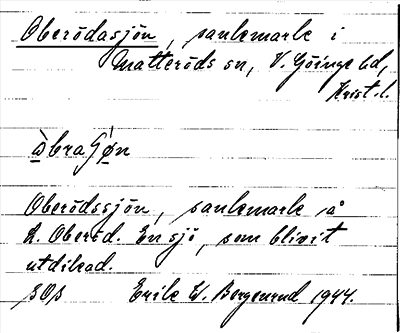 Oberödasjön, sankmark i
Matteröds sn, V. Göinge hd,
Krist. l.
òbraʃǿn
Oberödssjön, sankmark på
L. Oberöd. En sjö, som blivit
utdikad.
Erik W. Bergenrud 1944.